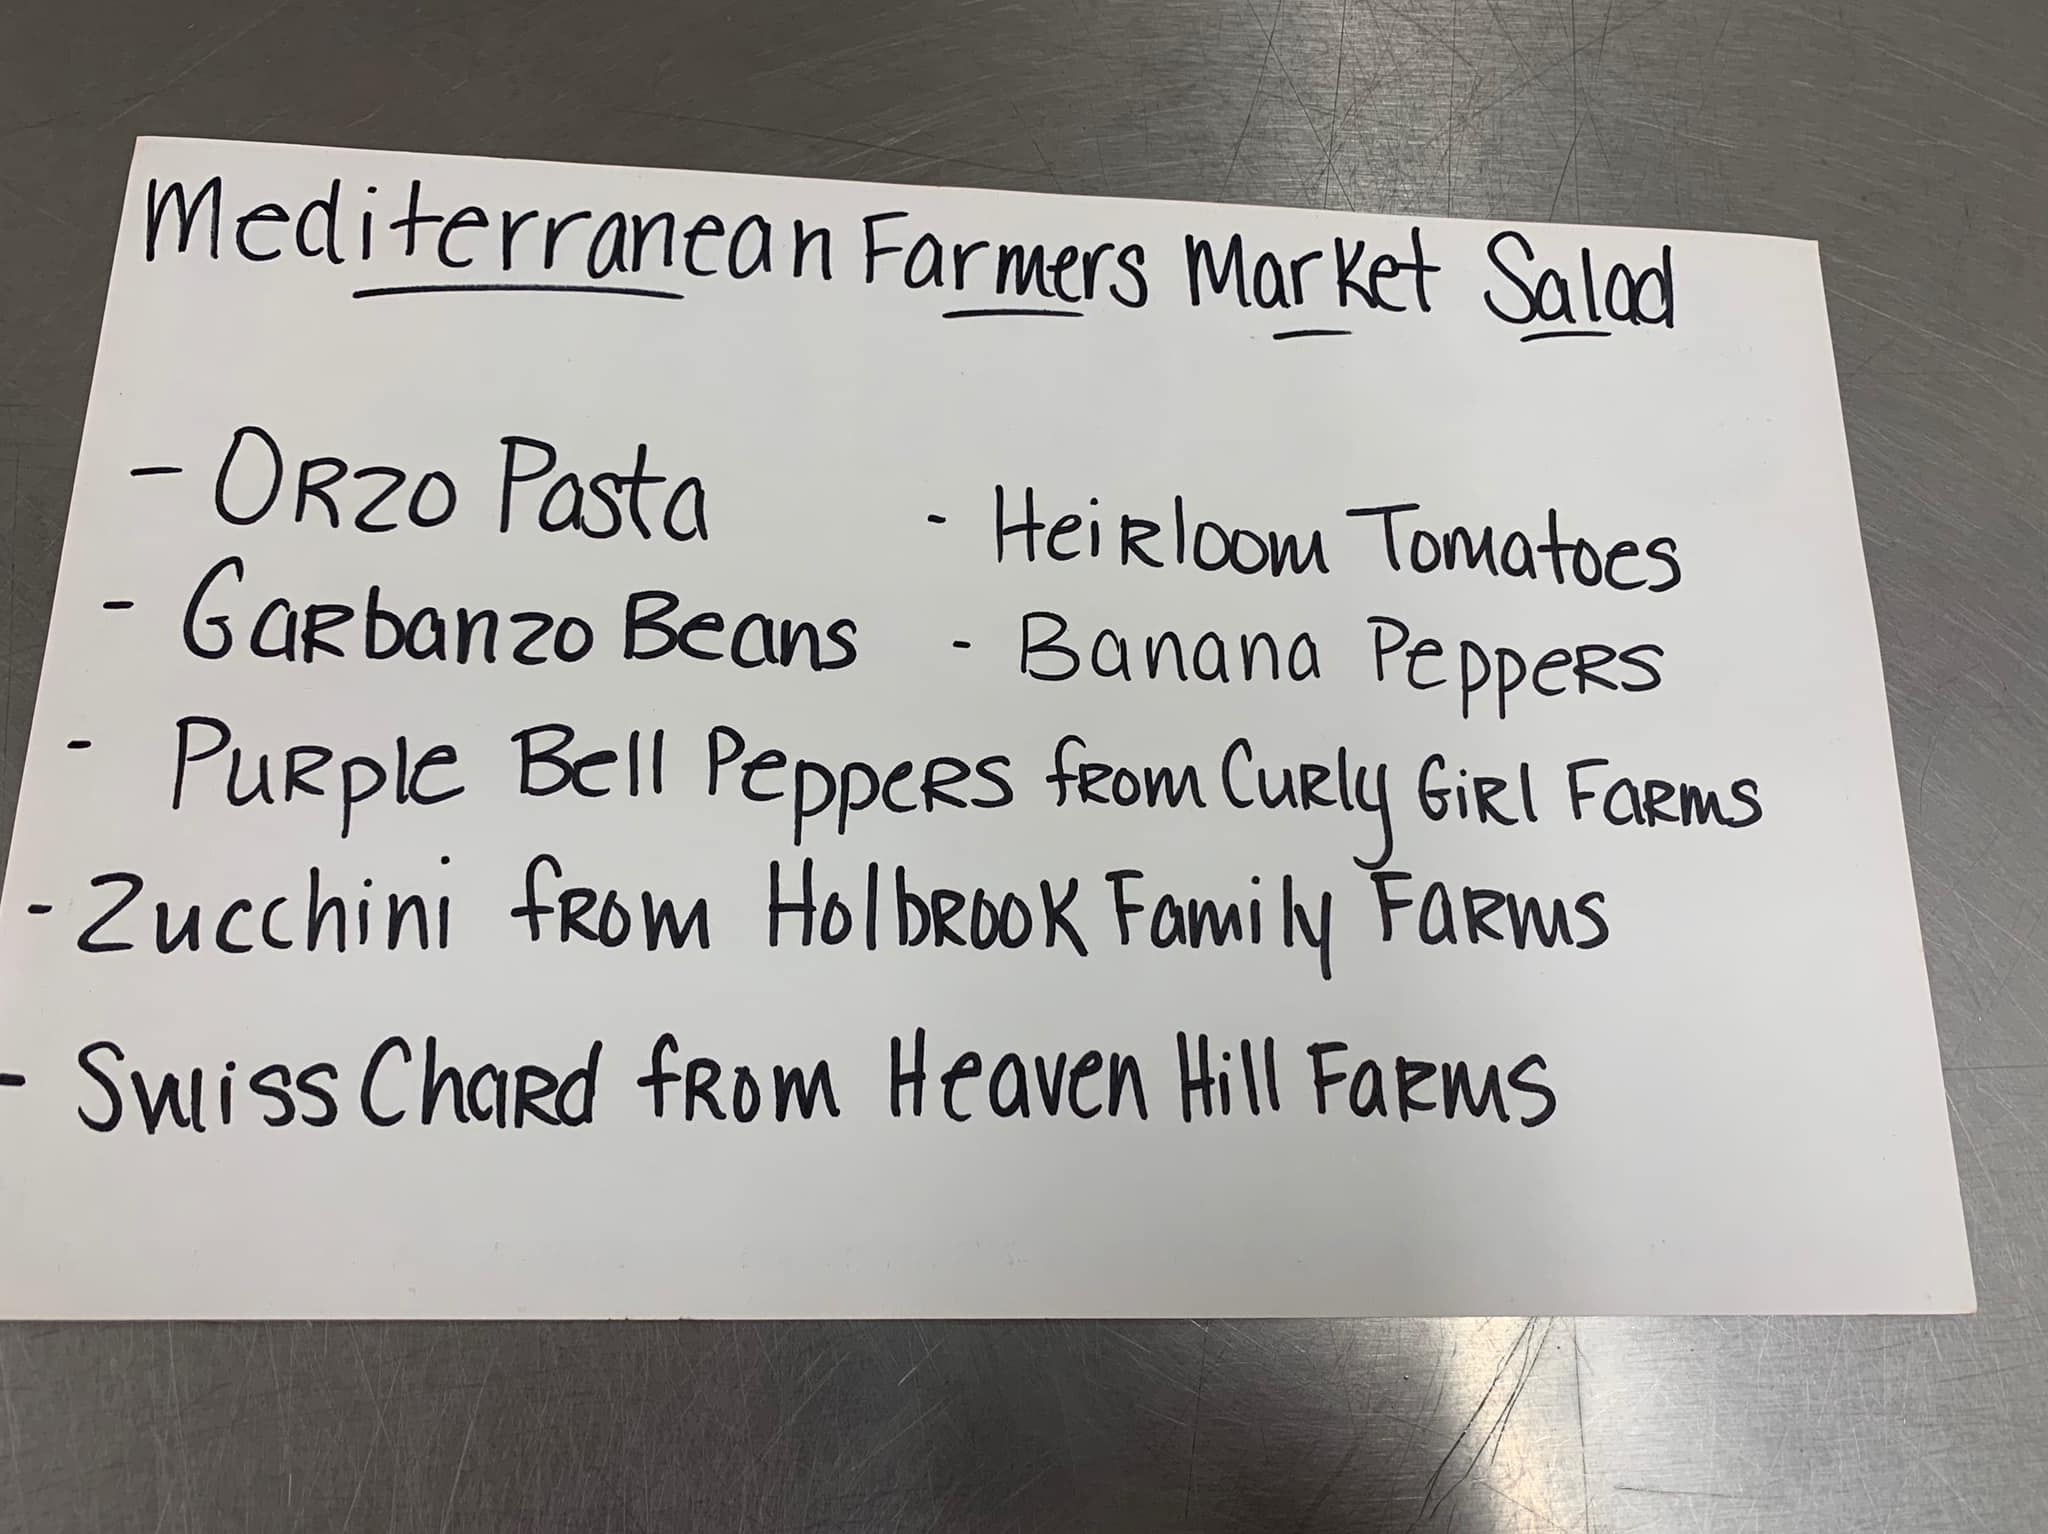 Mediterranean Farmers Market Salad
- Orzo Pasta
- Garbanzo Beans
- Heirloom Tomatoes
- Banana Peppers
- Purple Bell Peppers from Curly Girl Farms
- Zucchini from Holbrook Family Farms
- Swiss Chard from Heaven Hill Farms